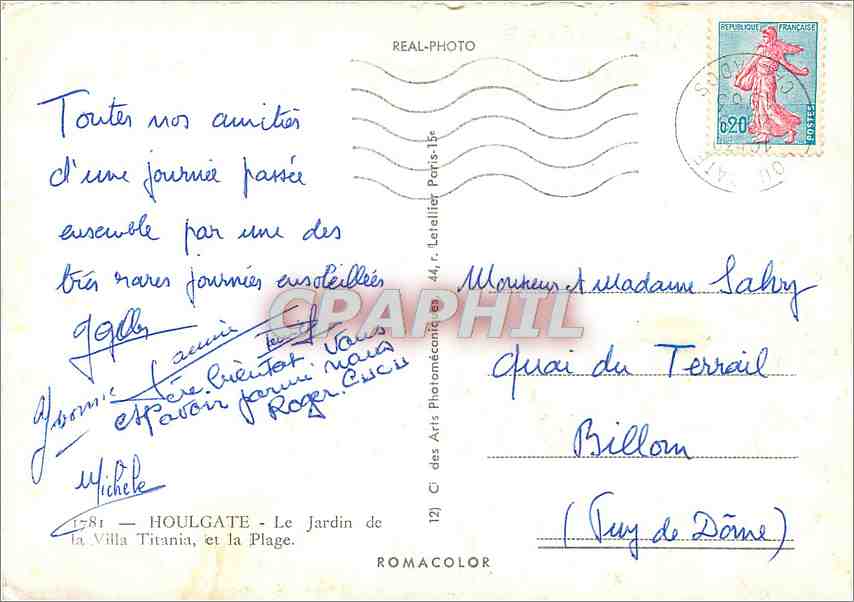 REAL-PHOTO
REPUBLIQUE FRANÇAISE
0,20
POSTES
CALVADOS
HOULGATE
Toutes nos amitiés
d'une journée passée
ensemble par une des
très rares journées ensoleillées
Yvonne
espère bientot vous
avoir parmi nous
Roger
Michèle
Monsieur et Madame Salvy
Quai du Terrail
Billom
(Puy de Dôme)
12) Ci des Arts Photomécaniques 44, r. Letellier Paris-15e
1781 — HOULGATE - Le Jardin de
la Villa Titania, et la Plage.
ROMACOLOR
CPAPHIL